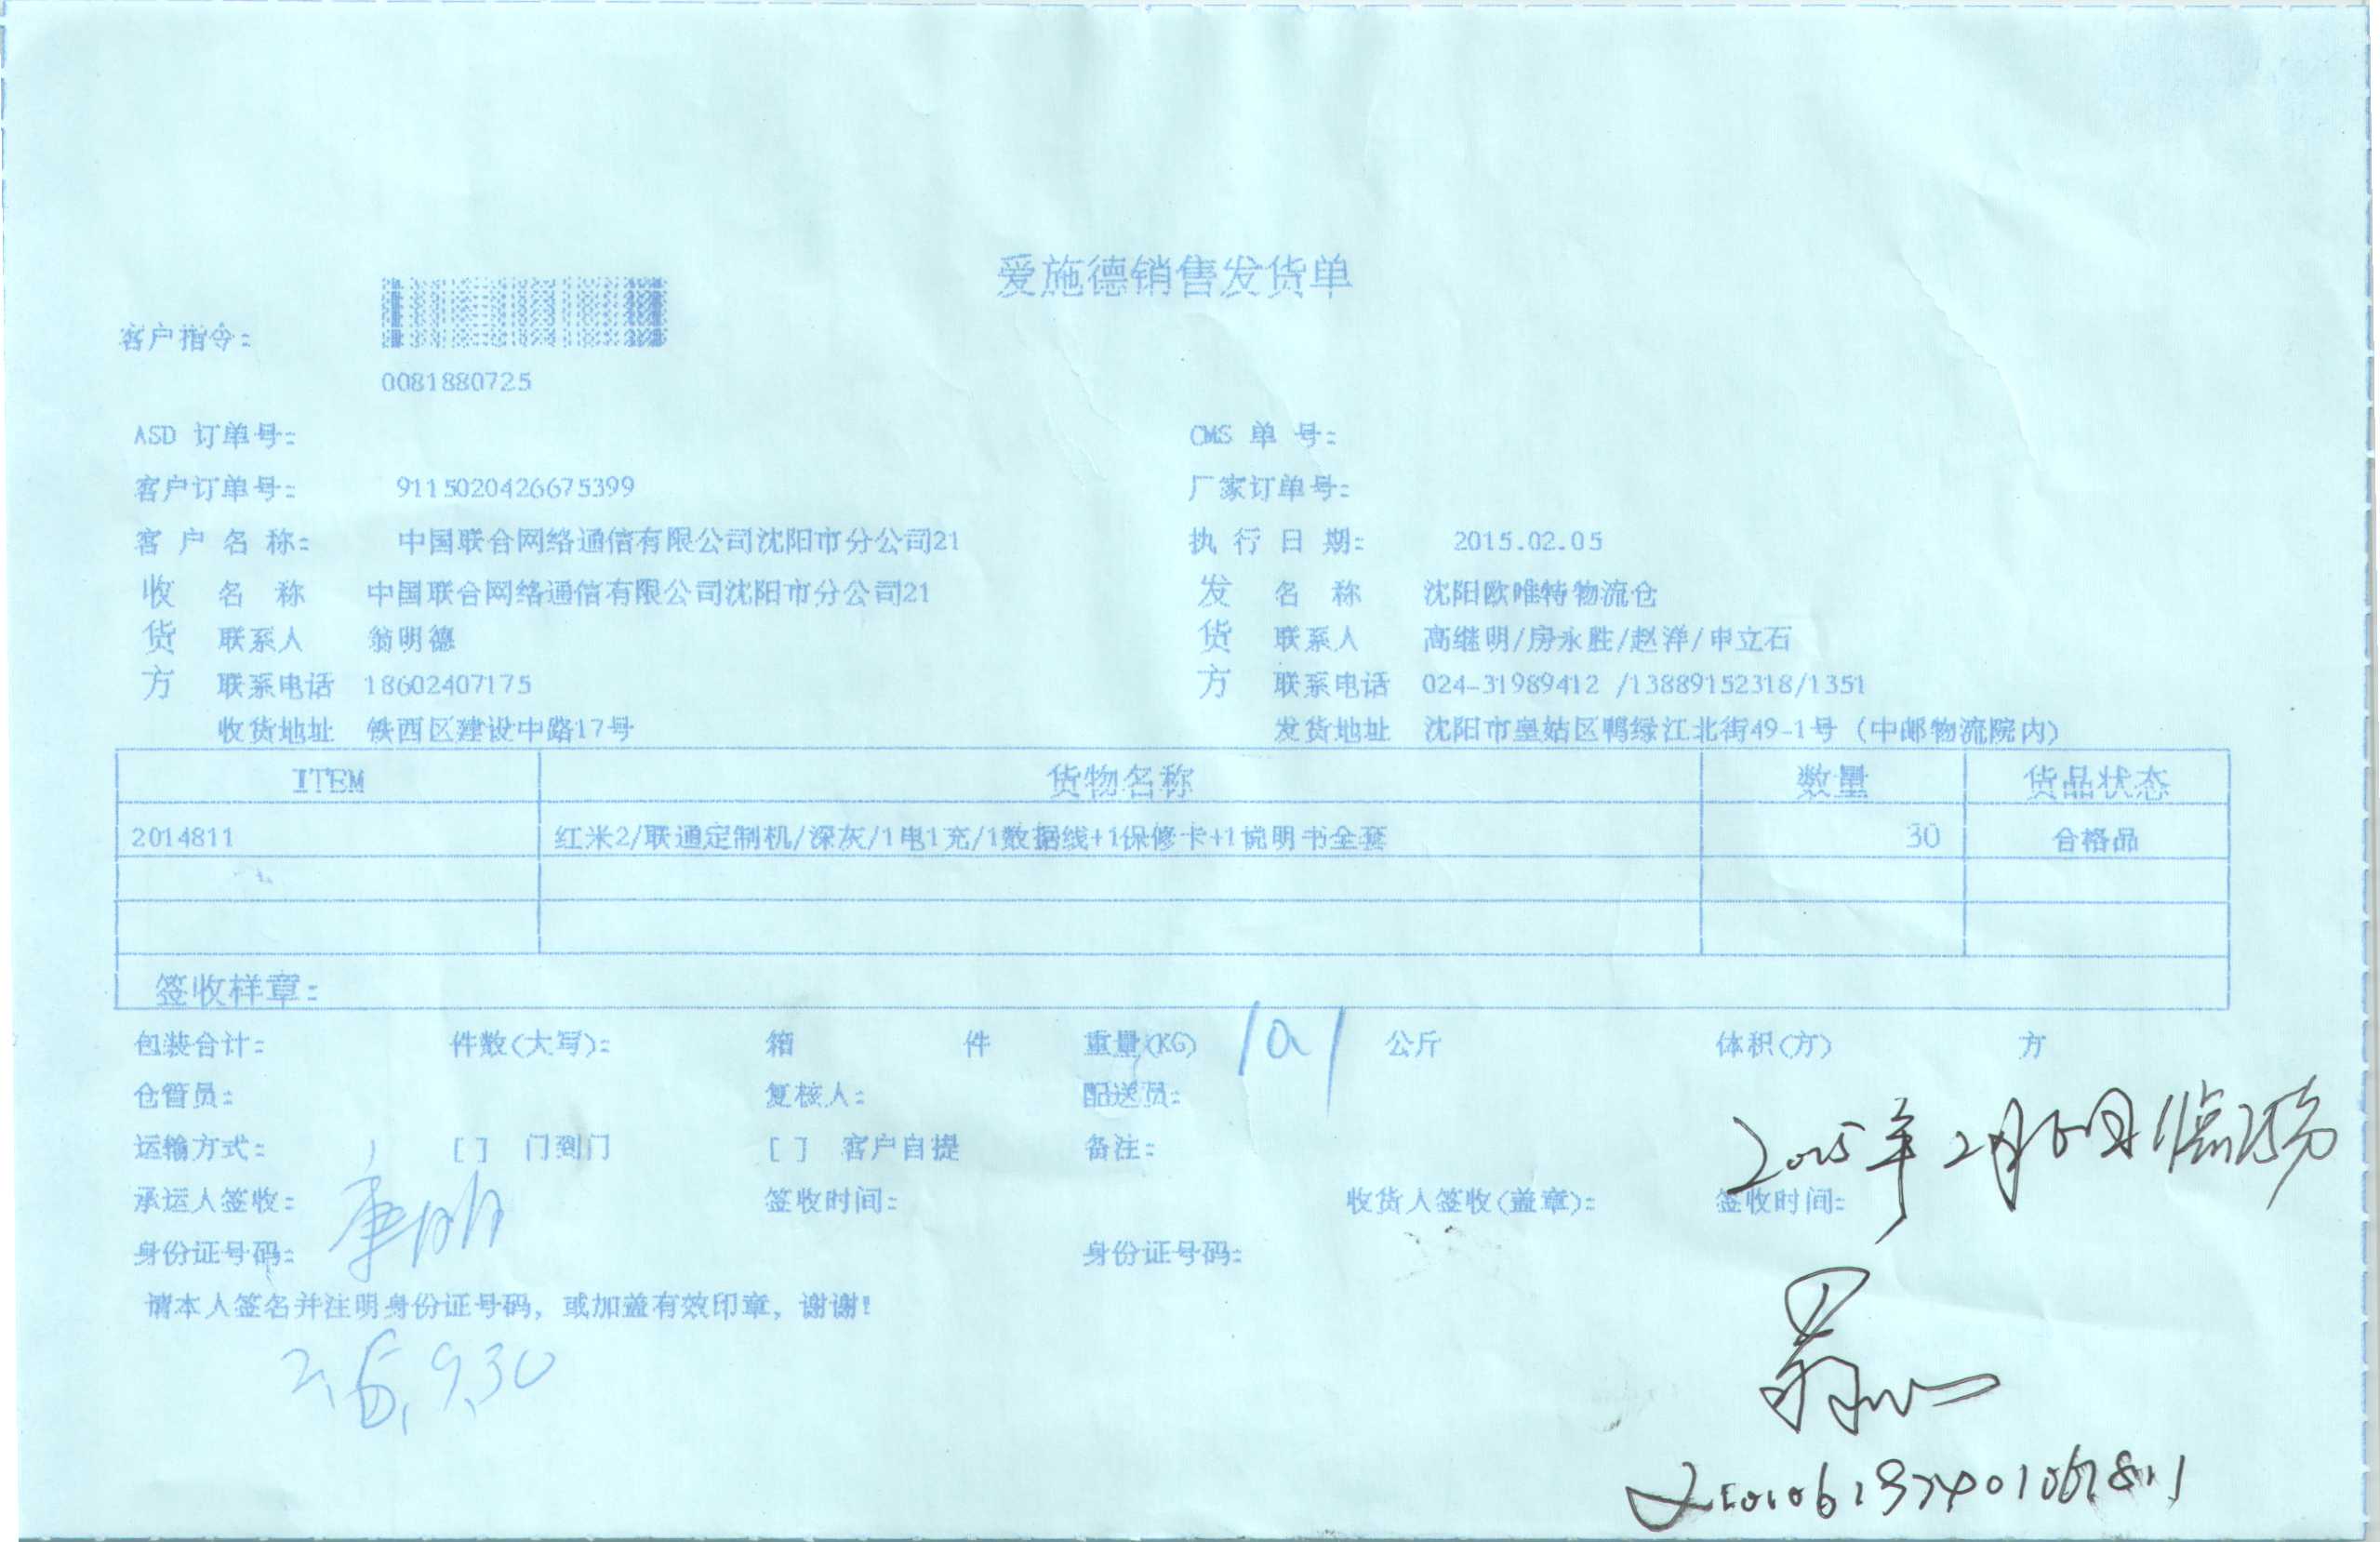 爱施德销售发货单
客户指令:
0081880725
ASD 订单号: CMS 单 号:
客户订单号: 9115020426675399 厂家订单号:
客 户 名 称: 中国联合网络通信有限公司沈阳市分公司21 执 行 日 期: 2015.02.05
收 名 称 中国联合网络通信有限公司沈阳市分公司21 发 名 称 沈阳欧唯特物流仓
货 联系人 翁明德 货 联系人 高继明/房永胜/赵洋/申立石
方 联系电话 18602407175 方 联系电话 024-31989412 /13889152318/1351
收货地址 铁西区建设中路17号 发货地址 沈阳市皇姑区鸭绿江北街49-1号 (中邮物流院内)
ITEM 货物名称 数量 货品状态
2014811 红米2/联通定制机/深灰/1电1充/1数据线+1保修卡+1说明书全套 30 合格品
签收样章:
包装合计: 件数(大写): 箱 件 重量(KG) 公斤 体积(方) 方
仓管员: 复核人: 配送员:
2015年2月6日
运输方式: [ ] 门到门 [ ] 客户自提 备注:
承运人签收: 签收时间: 收货人签收(盖章): 签收时间:
身份证号码: 身份证号码:
请本人签名并注明身份证号码, 或加盖有效印章, 谢谢!